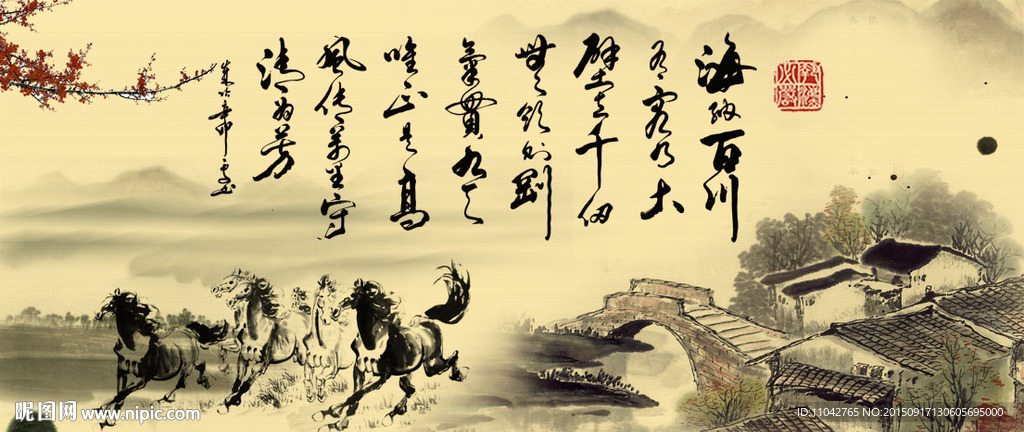 海纳百川
有容乃大
壁立千仞
無欲则剛
氣貫九天
唯正是高
風传萬里守
清为芳
昵图网 www.nipic.com
ID:11042765 NO:20150917130605695000